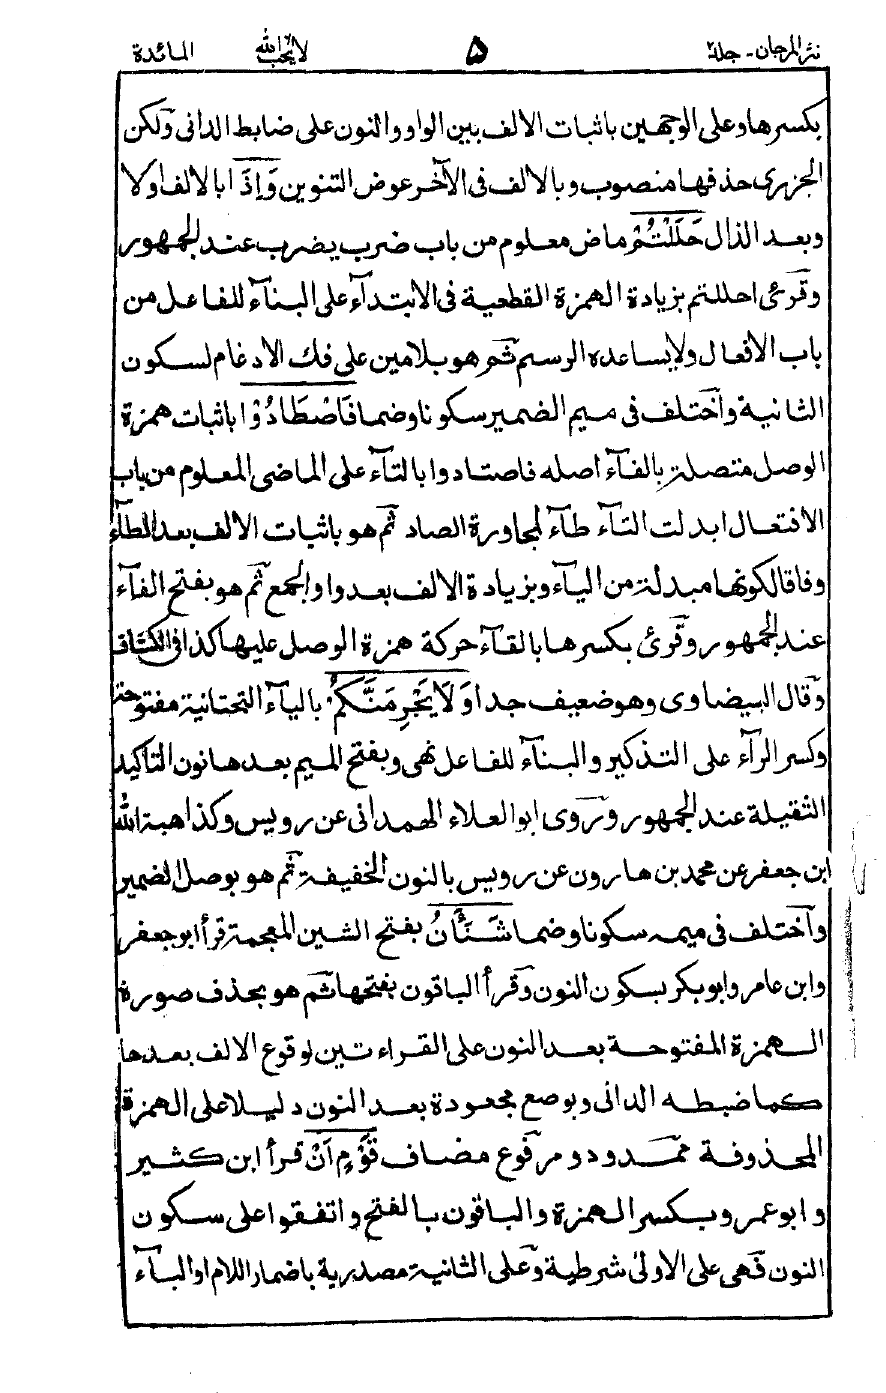 نثر المرجان - جلد٢ ۵ لا يحب الله المائدة
بكسرها وعلى الوجهين باثبات الالف بين الواو والنون على ضابط الدانى ولكن
الجزرى حذفها منصوب وبالالف فى الآخر عوض التنوين وَاِذَا بالالف اولا
وبعد الذال حَلَلْتُمْ ماض معلوم من باب ضرب يضرب عند الجمهور
وقرئ احللتم بزيادة الهمزة القطعية فى الابتدآء على البنآء للفاعل من
باب الافعال ولا يساعده الرسم ثم هو بلامين على فك الادغام لسكون
الثانية واختلف فى ميم الضمير سكونا وضما فَاصْطَادُوْا باثبات همزة
الوصل متصلة بالفآء اصله فاصتادوا بالتآء على الماضى المعلوم من باب
الافتعال ابدلت التآء طآء لمجاورة الصاد ثم هو باثبات الالف بعد الطآء
وفاقا لكونها مبدلة من اليآء وبزيادة الالف بعد واو الجمع ثم هو بفتح الفآء
عند الجمهور وقرئ بكسرها بالقآء حركة همزة الوصل عليها كذا فى الكشاف
وقال البيضاوى وهو ضعيف جدا وَلَا يَجْرِمَنَّكُمْ باليآء التحتانية مفتوحة
وكسر الرآء على التذكير والبنآء للفاعل نهى وبفتح الميم بعدها نون التاكيد
الثقيلة عند الجمهور وروى ابو العلاء الهمدانى عن رويس وكذا هبة الله
ابن جعفر عن محمد بن هارون عن رويس بالنون الخفيفة ثم هو بوصل الضمير
واختلف فى ميمه سكونا وضما شَنَآنُ بفتح الشين المعجمة قرأ ابو جعفر
وابن عامر وابو بكر بسكون النون وقرأ الباقون بفتحها ثم هو بحذف صورة
الهمزة المفتوحة بعد النون على القراءتين لوقوع الالف بعدها
كما ضبطه الدانى وبوضع مجعودة بعد النون دليلا على الهمزة
المحذوفة ممدود و مرفوع مضاف قَوْمٍ اَنْ قرأ ابن كثير
وابو عمرو بكسر الهمزة والباقون بالفتح واتفقوا على سكون
النون فهى على الاولى شرطية وعلى الثانية مصدرية باضمار اللام او البآء